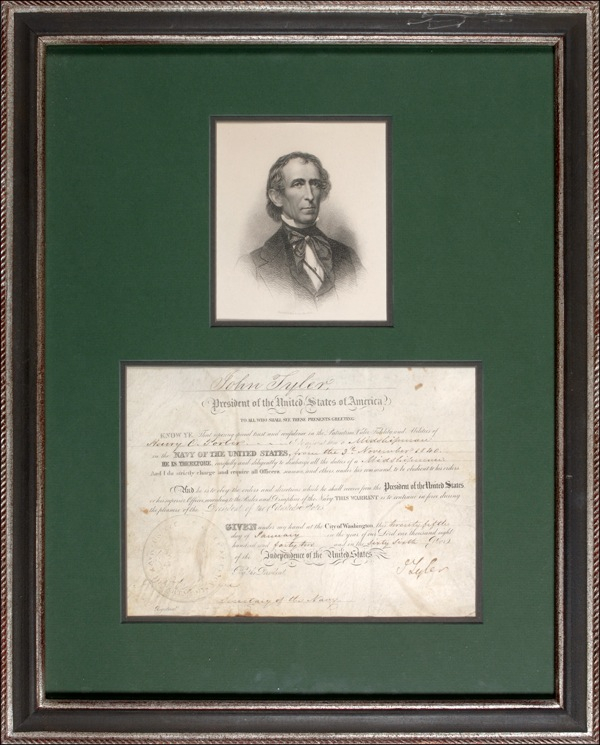 John Tyler,
President of the United States of America,
TO ALL WHO SHALL SEE THESE PRESENTS GREETING:
KNOW YE, That reposing special trust and confidence in the Patriotism, Valor, Fidelity and Abilities of
Henry C. I appoint him a Midshipman
in the NAVY OF THE UNITED STATES, from the 3d November 1840.
HE IS THEREFORE, carefully and diligently to discharge all the duties of a Midshipman
And I do strictly charge and require all Officers, seamen, and others under his command to be obedient to his orders
And he is to obey the orders and directions which he shall receive from the President of the United States
or his superior Officer, according to the Rules and Discipline of the Navy. THIS WARRANT is to continue in force during
the pleasure of the President of the United States
GIVEN under my hand at the City of Washington this twenty fifth
day of January in the year of our Lord one thousand eight
hundred and forty two and in the sixty sixth year
of the Independence of the United States.
By the President
J Tyler
Secretary of the Navy